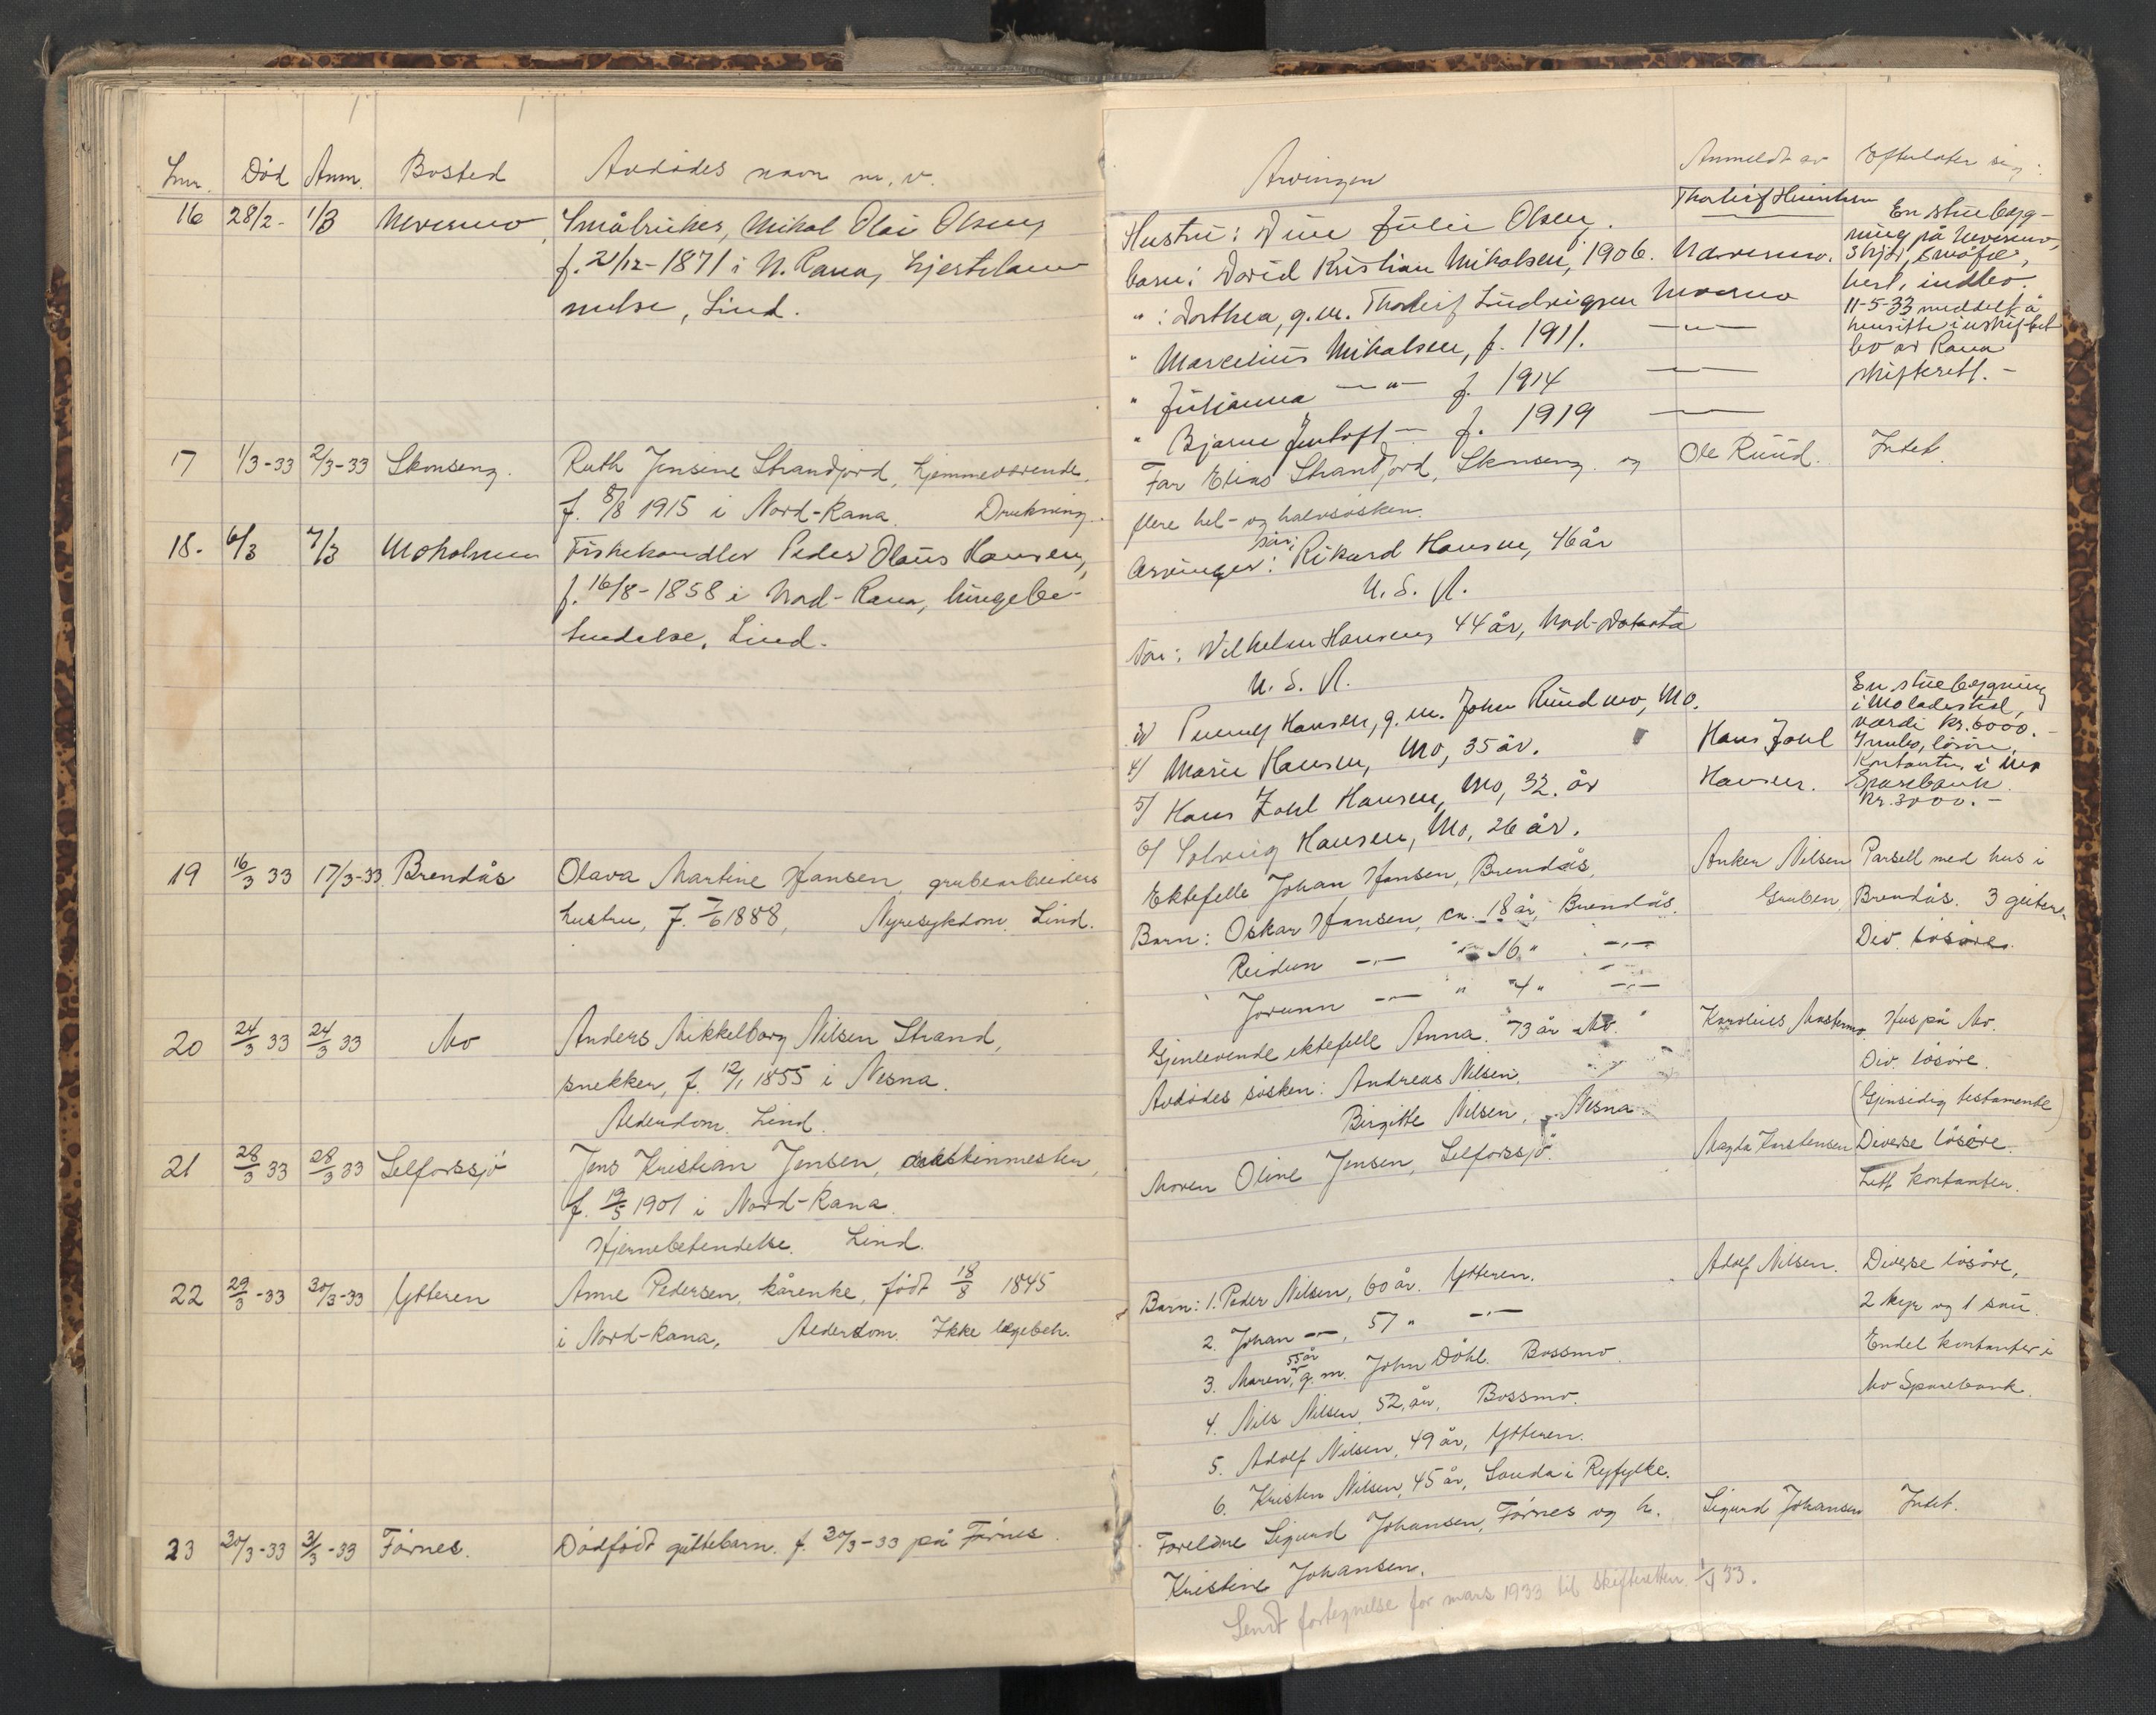 Lnr. Död Anm. Bosted Avdödes navn m. v.
16 28/2- 1/3 Nevermo Småbruker, Mikal Olai Olsen,
f. 21/12-1871 i N. Rana, hjertelam-
melse, Lind.
17 1/3-33 2/3-33 Skonseng. Ruth Jensine Strandjord, hjemmeværende,
f. 5/8 1915 i Nord-Rana. Drukning.
18. 6/3 7/3 Moholmen Fiskehandler Peder Olaus Hansen,
f. 16/8-1858 i Nord-Rana, lungebe-
tendelse. Lind.
19 16/3 33 17/3-33 Brendås Olava Martine Hansen, grubearbeiders
hustru, f. 7/6 1888, Nyresykdom. Lind.
20 24/3 33 24/3 33 Mo Anders Mikkelborg Nilsen Strand,
snekker, f. 12/1 1855 i Nesna.
Alderdom. Lind.
21 28/3 33 28/3 33 Selforssjö Jens Kristian Jensen, maskinmester,
f. 19/5 1901 i Nord-Rana.
Hjernebetendelse. Lind.
22 29/3-33 30/3-33 Ytteren Anne Pedersen, kårenke, födt 18/8 1845
i Nord-Rana, Alderdom. Ikke lægebeh.
23 30/3-33 31/3-33 Förnes. Dödfödt guttebarn. f. 30/3-33 på Förnes.
Arvinger Anmeldt av Efterlater sig:
Hustru: Dine Julie Olsen. En stuebyg-
ning på Nevermo,
barn: David Kristian Mikalsen, 1906. Nevermo.
": Dorthea, g.m. Thorleif Ludvigsen Nevermo
hest, indbo.
11-5-33 meddelt å
hensitte i uskiftet
bo av Rana
skifterett.-
" Marcelius Mikalsen, f. 1911. —"—
" Julianna —"— f. 1914 ——
" Bjarne Jentoft — f. 1919 ——
Far Elias Strandjord, Skonseng. og Ole Ruud. Intet.
flere hel- og halvsösken.
Arvinger: sön: Rikard Hansen, 46 år
U. S. A.
Sön: Vilhelm Hansen, 44 år, Nord-Dakota
U. S. A.
Hansen, g.m. John Rundmo, Mo.
4/ Marie Hansen, Mo, 35 år.
5/ Hans Zahl Hansen, Mo, 32 år
6/ Solveig Hansen, Mo, 26 år.
Hans Zahl
Hansen.
En stuebygning
værdi kr. 6000.-
Innbo, lösöre,
Kontanter i Mo
Sparebank.
kr. 3000.-
Ektefelle Johan Hansen, Brendås, Anker Nilsen Parsell med hus i
Barn: Oskar Hansen, ca. 18 år, Brendås. Gruben, Brendås. 3 geiter.
Reidun —"— " 16 " —"— Div. lösöre.
Jorunn —"— " 4 " —"—
Gjenlevende ektefelle Anna. 73 år Mo. Hus på Mo.
Avdödes sösken: Andreas Nilsen, Div. lösöre.
Birgitte Nilsen, Nesna. (Gjensidig testamente)
Moren Oline Jensen, Selforssjö. Magda Karstensen Diverse lösöre.
Litt kontanter.
Barn: 1. Peder Nilsen, 60 år. Ytteren. Adolf Nilsen. Diverse lösöre,
2. Johan —"—, 57 " —"— 2 kyr og 1 sau.
3. Maren, 55 år g. m. John Döhl. Bossmo. Endel kontanter i
4. Nils Nilsen, 52 år, Bossmo. Mo Sparebank.
5. Adolf Nilsen, 49 år, Ytteren.
6. Kristen Nilsen, 45 år, Sauda i Ryfylke.
Foreldre Sigurd Johansen, Förnes og h. Sigurd Johansen Intet.
Kristine Johansen.
Sendt fortegnelse for mars 1933 til skifteretten 1/4 33.